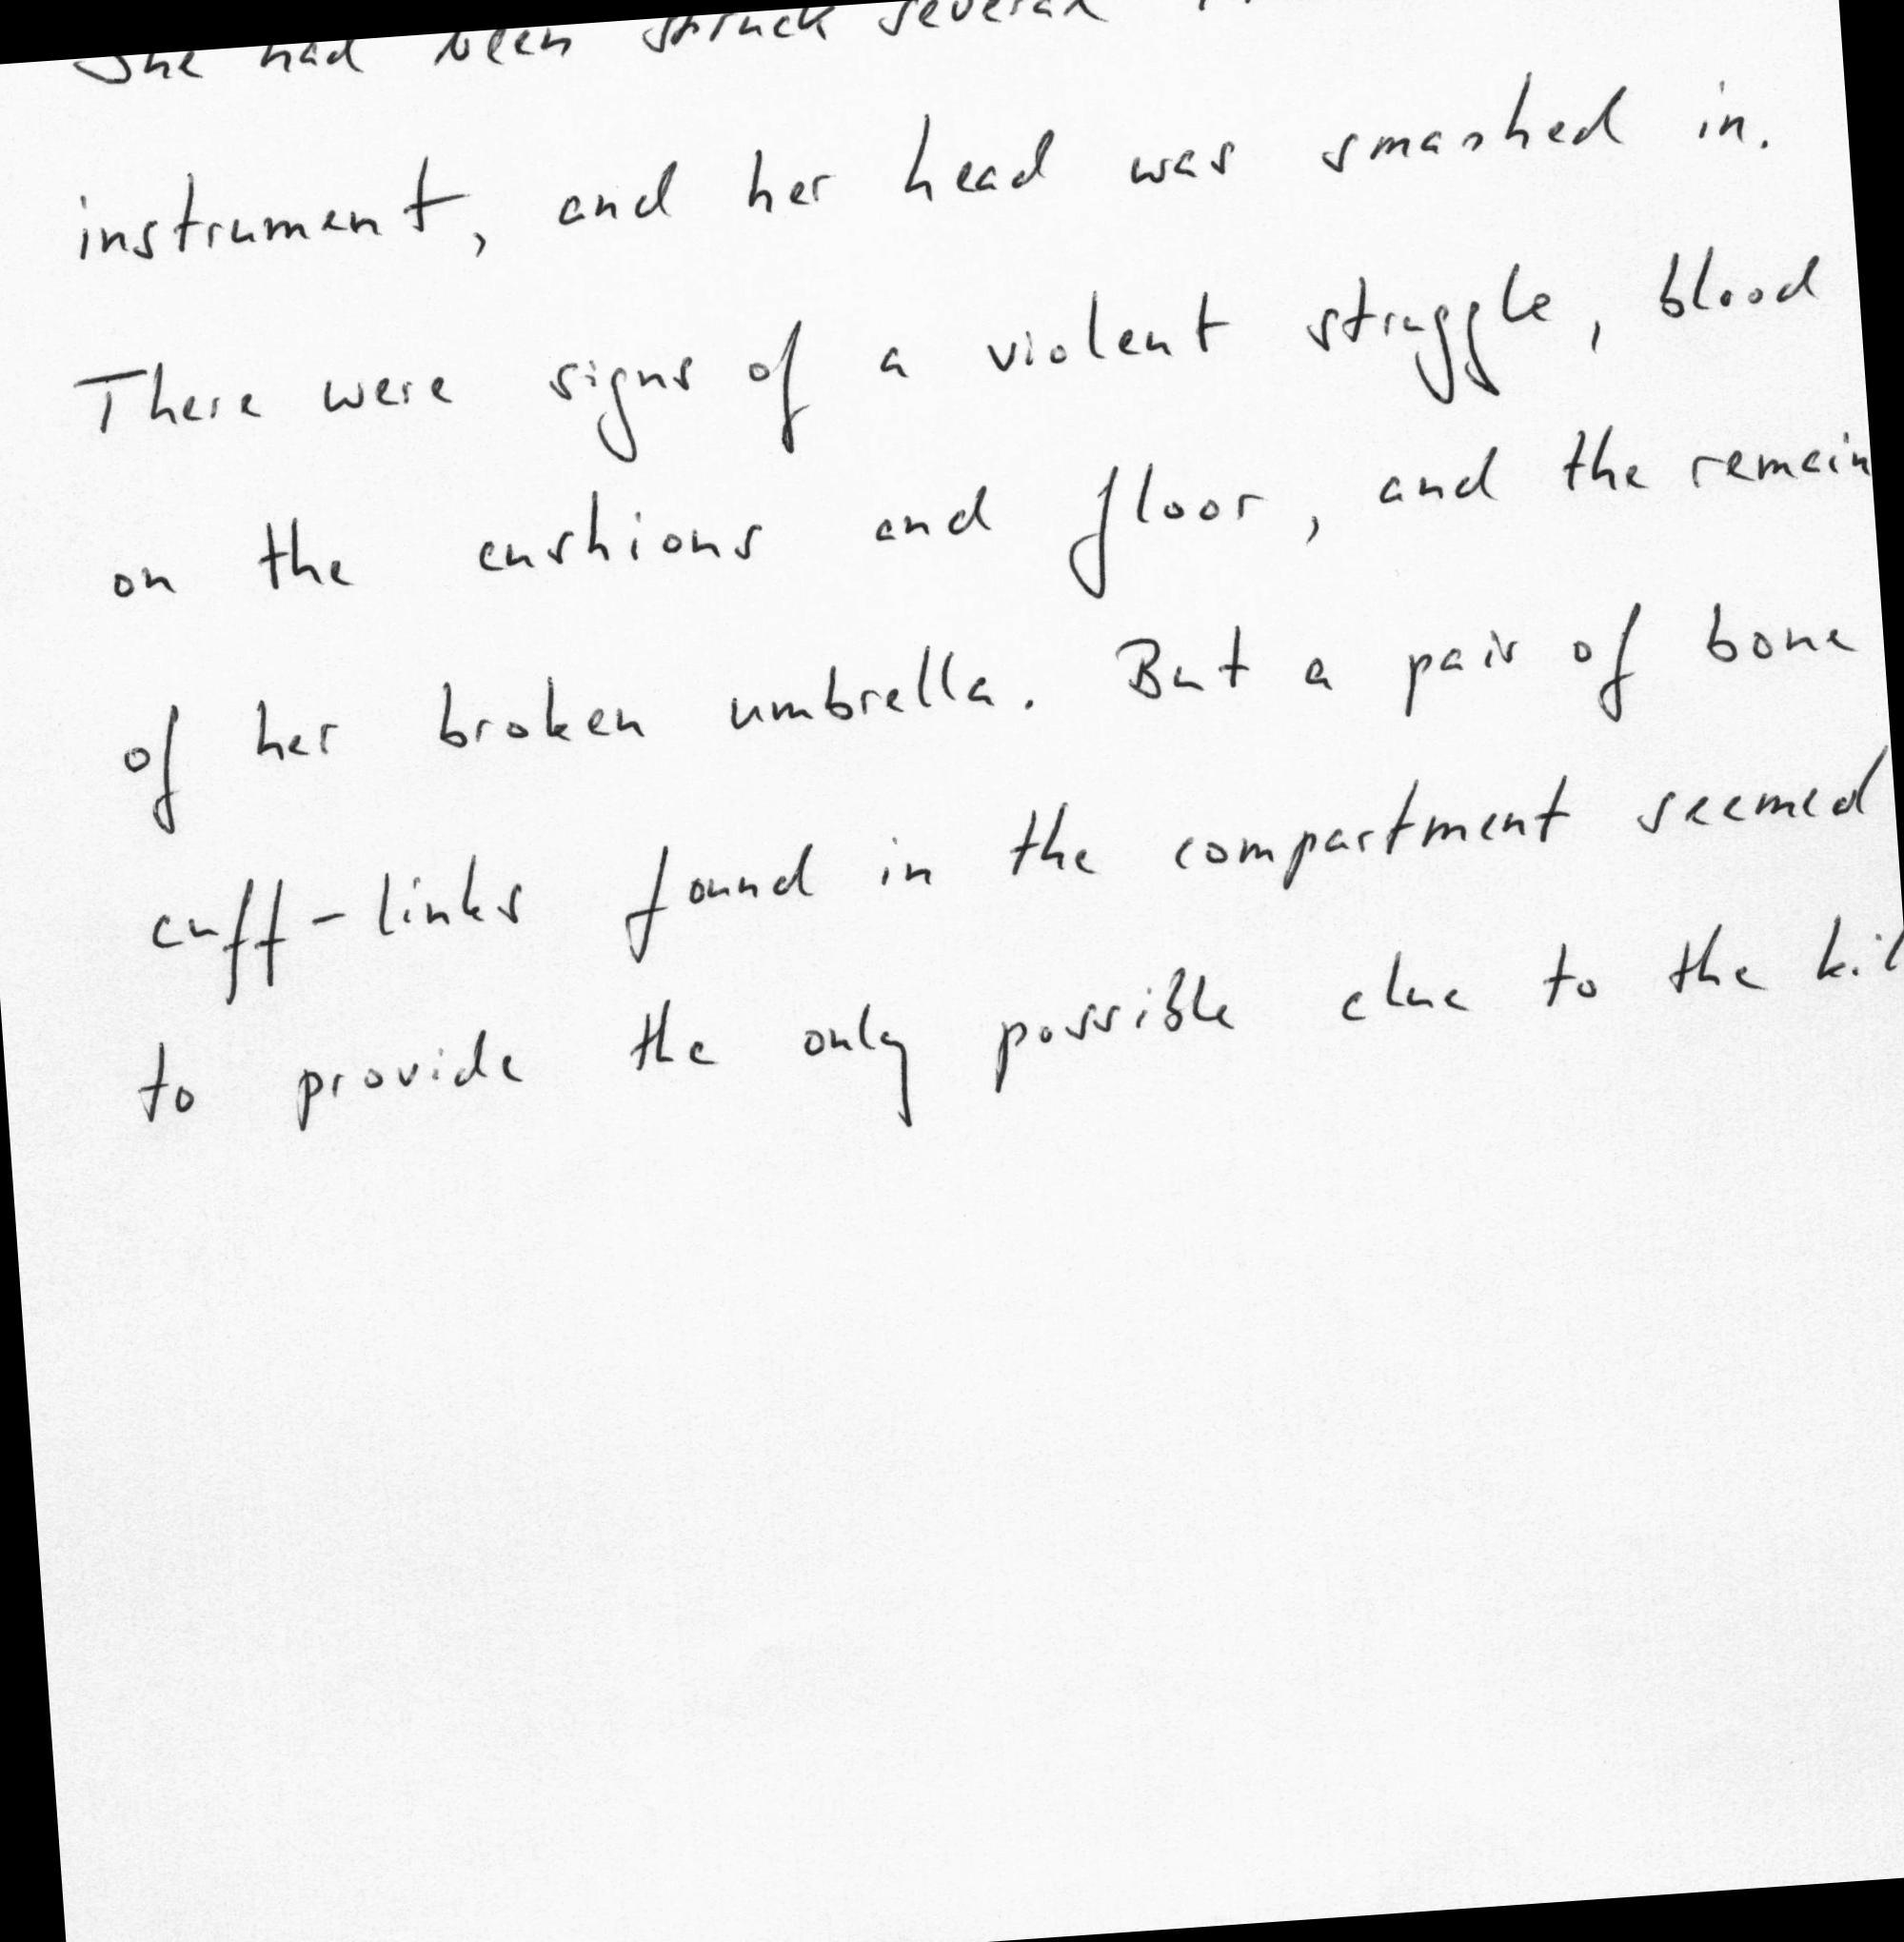 She had been struck several
instrument, and her head was smashed in.
There were signs of a violent struggle, blood
on the cushions and floor, and the remain
of her broken umbrella. But a pair of bone
cuff-links found in the compartment seemed
to provide the only possible clue to the